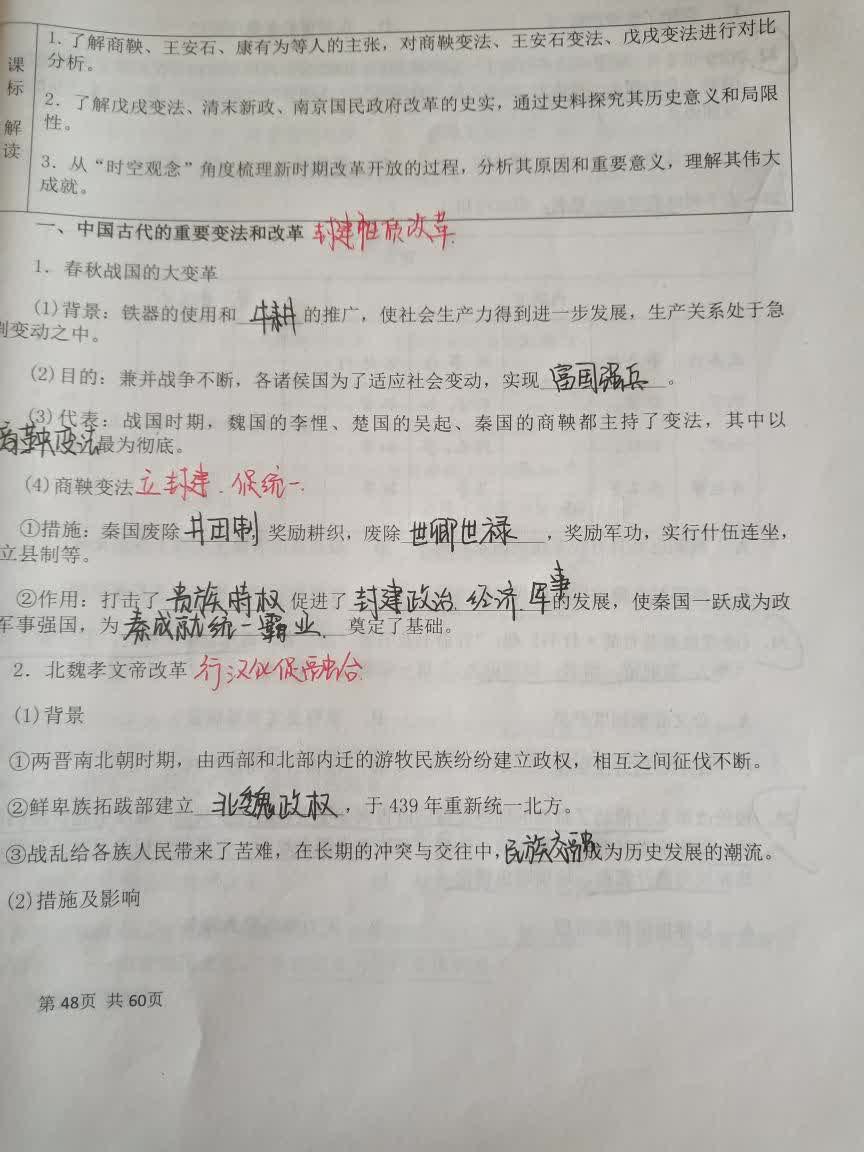 课标解读
1. 了解商鞅、王安石、康有为等人的主张，对商鞅变法、王安石变法、戊戌变法进行对比
分析。
2. 了解戊戌变法、清末新政、南京国民政府改革的史实，通过史料探究其历史意义和局限
性。
3. 从“时空观念”角度梳理新时期改革开放的过程，分析其原因和重要意义，理解其伟大
成就。
一、中国古代的重要变法和改革 封建性质改革.
1. 春秋战国的大变革
(1)背景：铁器的使用和 牛耕 的推广，使社会生产力得到进一步发展，生产关系处于急
剧变动之中。
(2)目的：兼并战争不断，各诸侯国为了适应社会变动，实现 富国强兵 。
(3)代表：战国时期，魏国的李悝、楚国的吴起、秦国的商鞅都主持了变法，其中以
商鞅变法最为彻底。
(4)商鞅变法 立封建.促统一.
①措施：秦国废除 井田制 奖励耕织，废除 世卿世禄 ，奖励军功，实行什伍连坐，
立县制等。
②作用：打击了 贵族特权 促进了 封建政治.经济.军事的发展，使秦国一跃成为政
军事强国，为 秦成就统一霸业 奠定了基础。
2. 北魏孝文帝改革 行汉化促融合.
(1)背景
①两晋南北朝时期，由西部和北部内迁的游牧民族纷纷建立政权，相互之间征伐不断。
②鲜卑族拓跋部建立 北魏政权 ，于 439 年重新统一北方。
③战乱给各族人民带来了苦难，在长期的冲突与交往中，民族交融成为历史发展的潮流。
(2)措施及影响
第 48页 共 60页